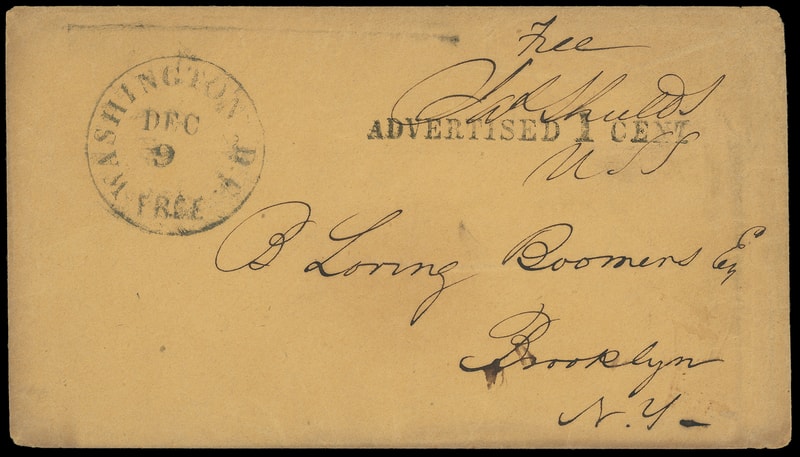 WASHINGTON D.C.
DEC
9
FREE
Free
Jas Shields
ADVERTISED 1 CENT
U.S.S
B Loring Boomers Esq
Brooklyn
N.Y.